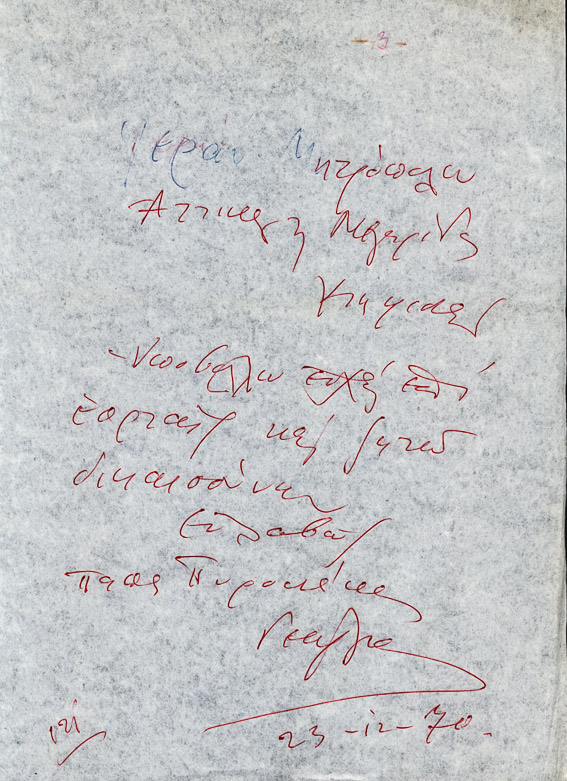 -3-
Ἱεράν Μητρόπολιν
Ἀττικῆς ἢ Μεγαρίδος
Κηφισιάν
Ὑποβάλω εὐχάς ἐπί
ἑορταῖς καί ζητῶ
δικαιοσύνην
Εὐλαβῶς
παπα
23-12-70.